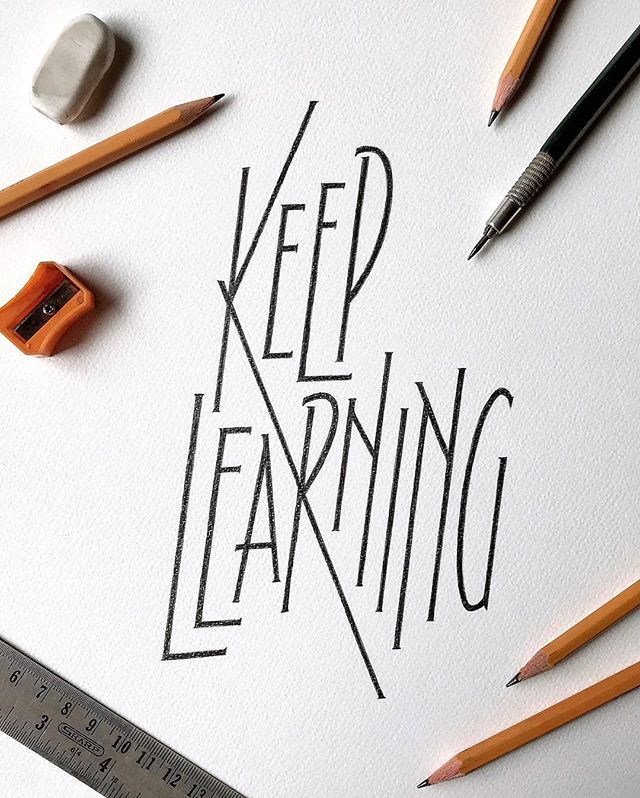 KEEP
LEARNING
6 7 8 9 10 11 12 13
3 4
SHARP